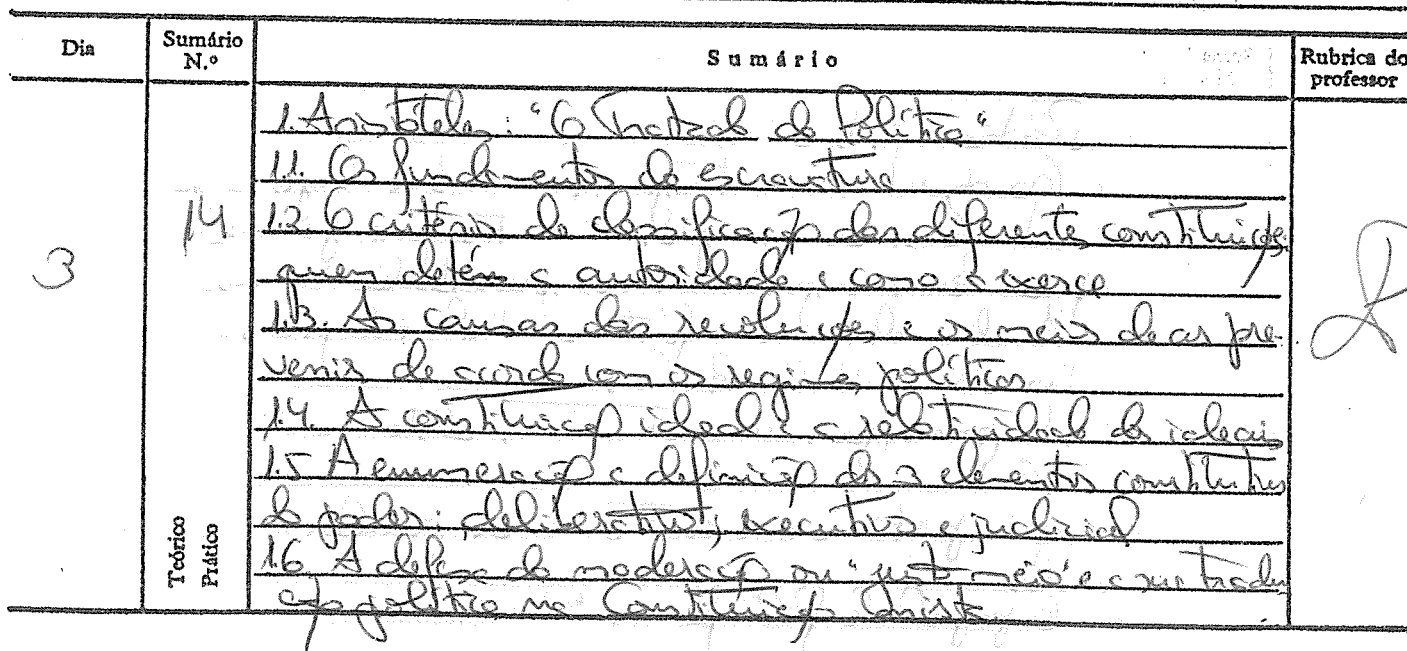 Dia
Sumário N.º
Sumário
Rubrica do professor
3
14
Teórico
Prático
1. Aristóteles: "O Tratado da Política"
1.1. Os fundamentos da escravatura
1.2 O critério de classificação das diferentes constituições:
quem detém a autoridade e como a exerce
1.3. As causas das revoluções e os meios de as pre-
venir de acordo com os regimes políticos
1.4. A constituição ideal e a relatividade dos ideais
1.5 A enumeração e definição dos 3 elementos constitutivos
do poder: deliberativo, executivo e judicial
1.6 A defesa da moderação ou "justo meio" e a sua tradu
ção política na Constituição Mista